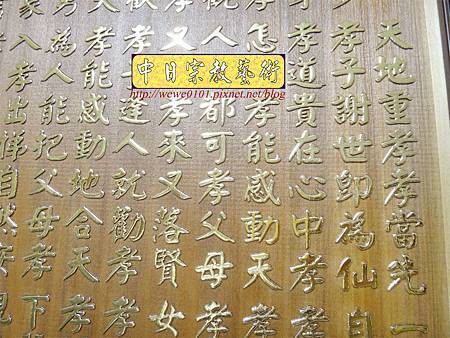 中日宗教藝術
http://wewe0101.pixnet.net/blog
天地重孝孝當先一
孝子謝世即為仙自
孝道貴在心中孝孝
怎孝能感動天孝
人都可孝父母孝
孝又孝來又落賢女
孝逢人就勸孝孝
孝能感動地合天孝
為人能把父母孝下
家入孝出悌自然安見